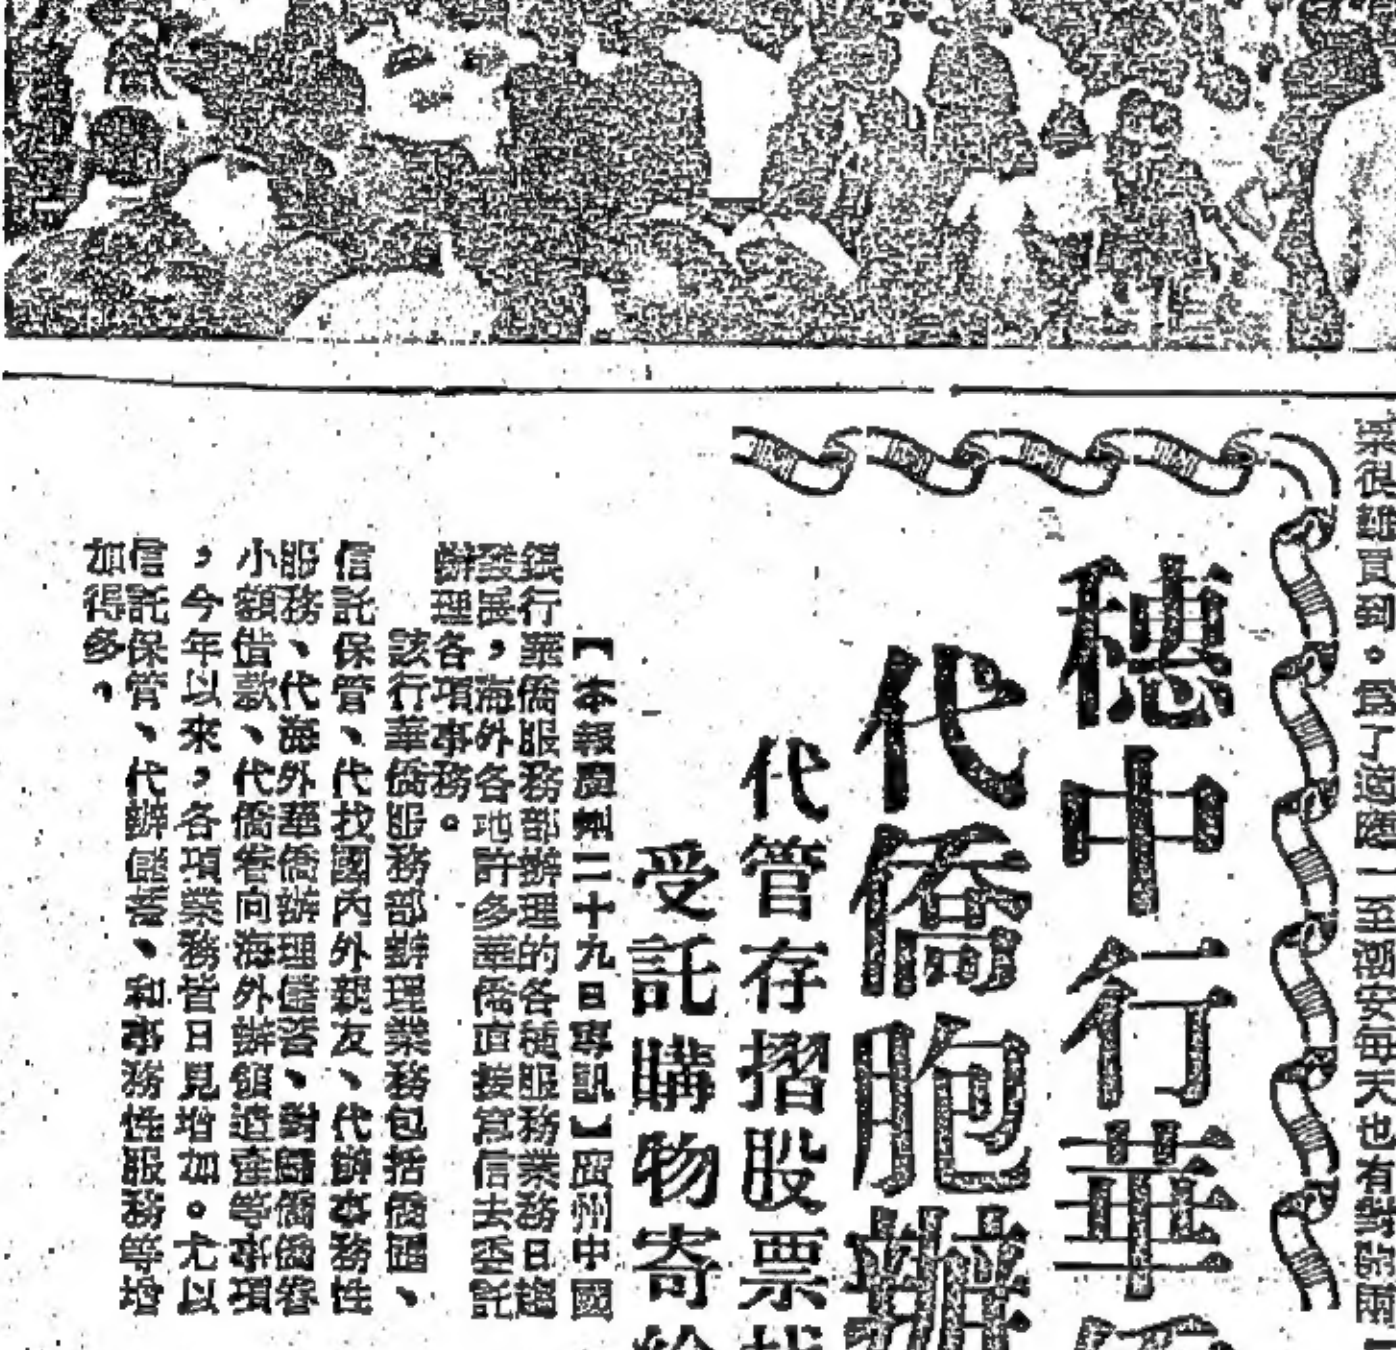 很難買到。爲了適應
至
安每天也有
穗中行華
代僑胞辦
代管存摺股票
受託購物寄
【本報廣州二十九日專訊】廣州中國
銀行華僑服務部辦理的各種服務業務日趨
發展，海外各地許多華僑直接寫信去委託
辦理各項事務。
該行華僑服務部辦理業務包括僑匯、
信託保管、代找國內外親友、代辦事務性
服務、代海外華僑辦理儲蓄、對歸僑僑眷
小額借款、代僑眷向海外辦領遺產等事項
，今年以來，各項業務皆日見增加。尤以
信託保管、代辦儲蓄、和事務性服務等增
加得多。